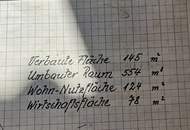 Verbaute Fläche 145 m²
Umbauter Raum 554 m³
Wohn-Nutzfläche 124 m²
Wirtschaftsfläche 78 m²